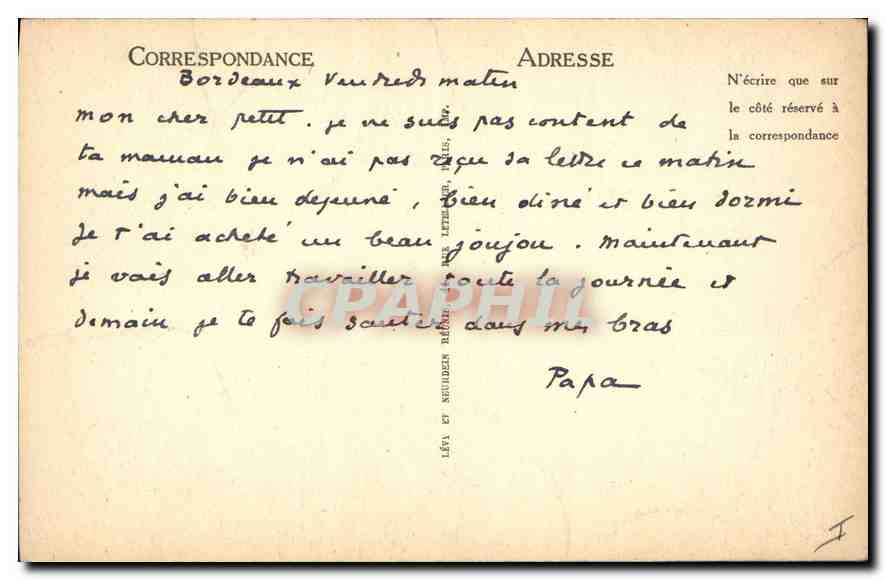 CORRESPONDANCE
ADRESSE
N'écrire que sur
le côté réservé à
la correspondance
Bordeaux Vendredi matin
mon cher petit. je ne suis pas content de
ta maman je n'ai pas reçu sa lettre ce matin
mais j'ai bien dejeuné, bien diné et bien dormi
Je t'ai acheté un beau joujou. Maintenant
je vais aller travailler toute la journée et
demain je te fais sauter dans mes bras
Papa
LÉVY ET NEURDEIN RÉUNIS, 44, RUE LETELLIER, PARIS, IMP.
CPAPHIL
I